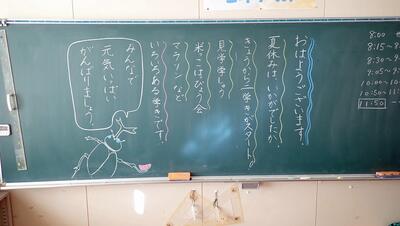 おはようございます。
夏休みは、いかがでしたか。
きょうから二学きがスタート!!
見学学しゅう
米っこはなつ会
マラソンなど
いろいろある学きです。
みんなで
元気いっぱい
がんばりましょう。
8:00
8:15～
8:3
9:05～
10:00～
10:50～11
11:50